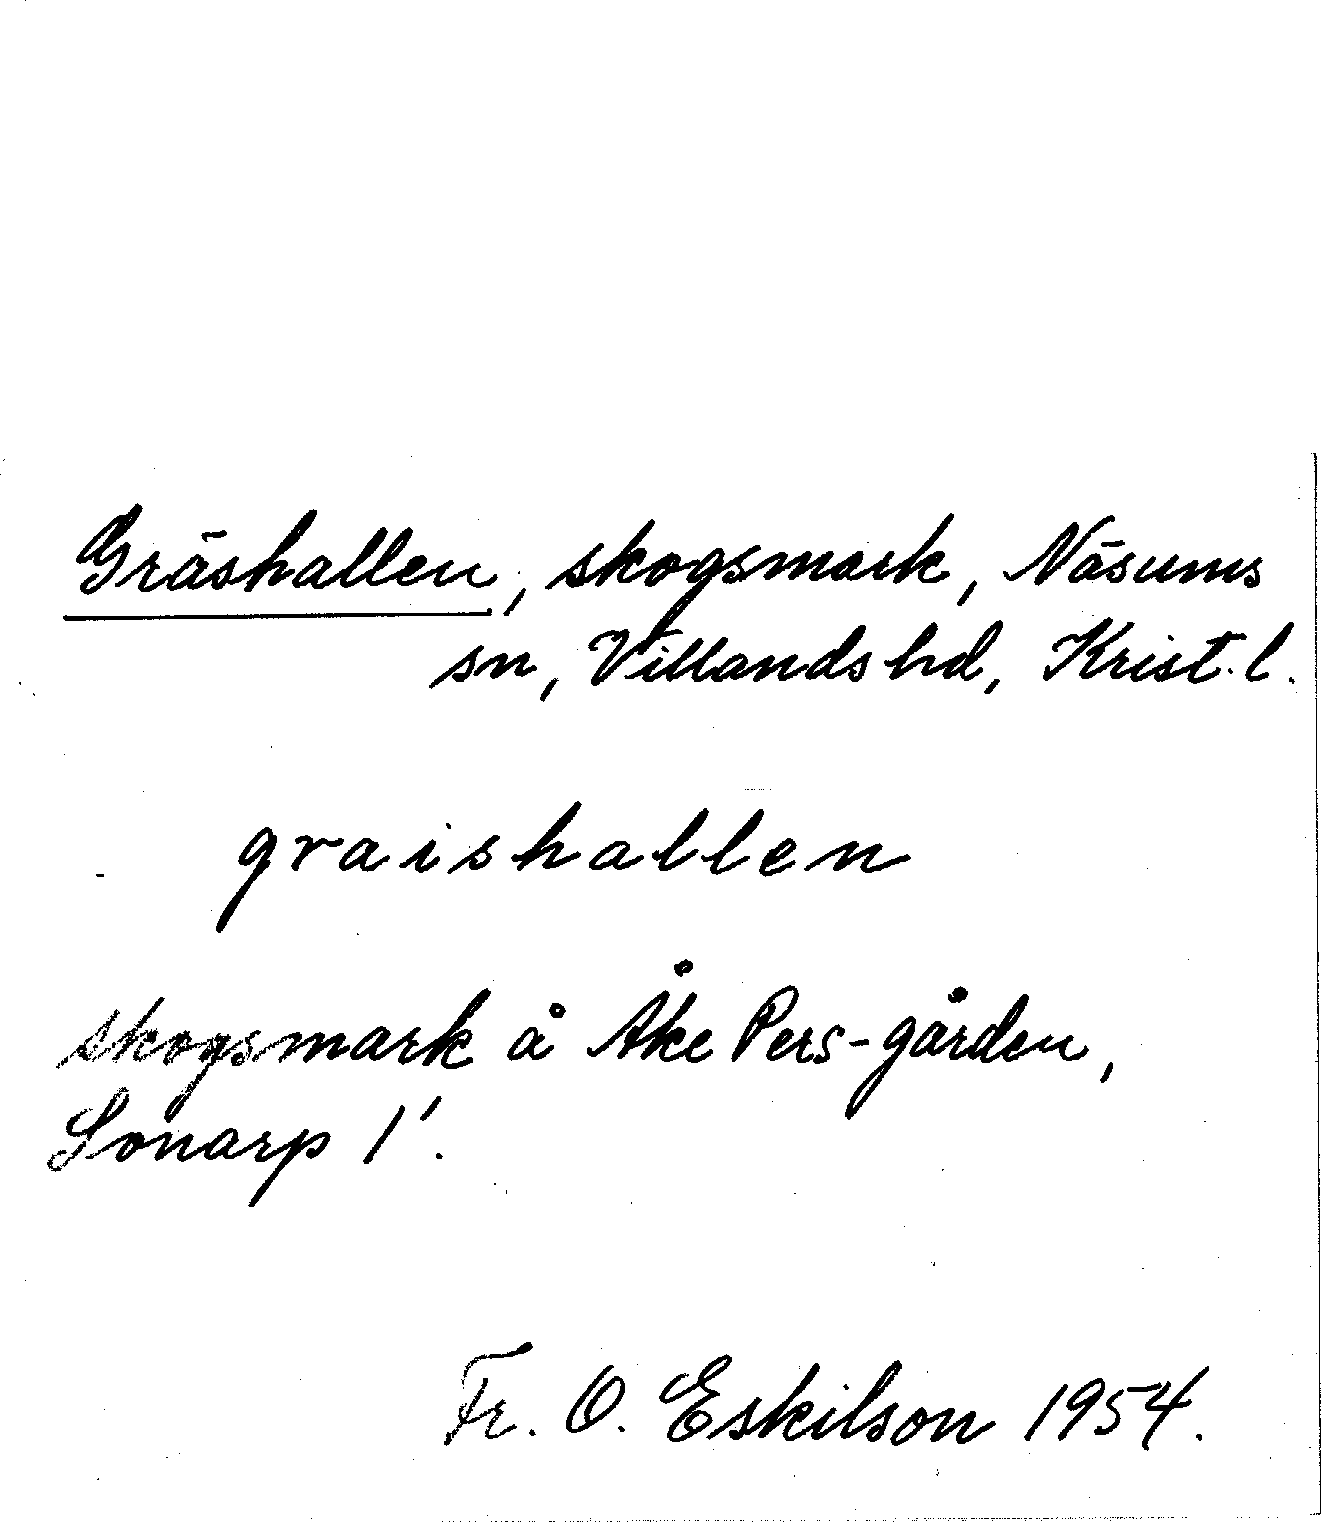 Gräshallen, skogsmark, Näsums
sn, Villands hd, Krist. l.
graishallen
skogsmark å Åke Pers-gården,
Sonarp 1'.
Fr. O. Eskilson 1954.